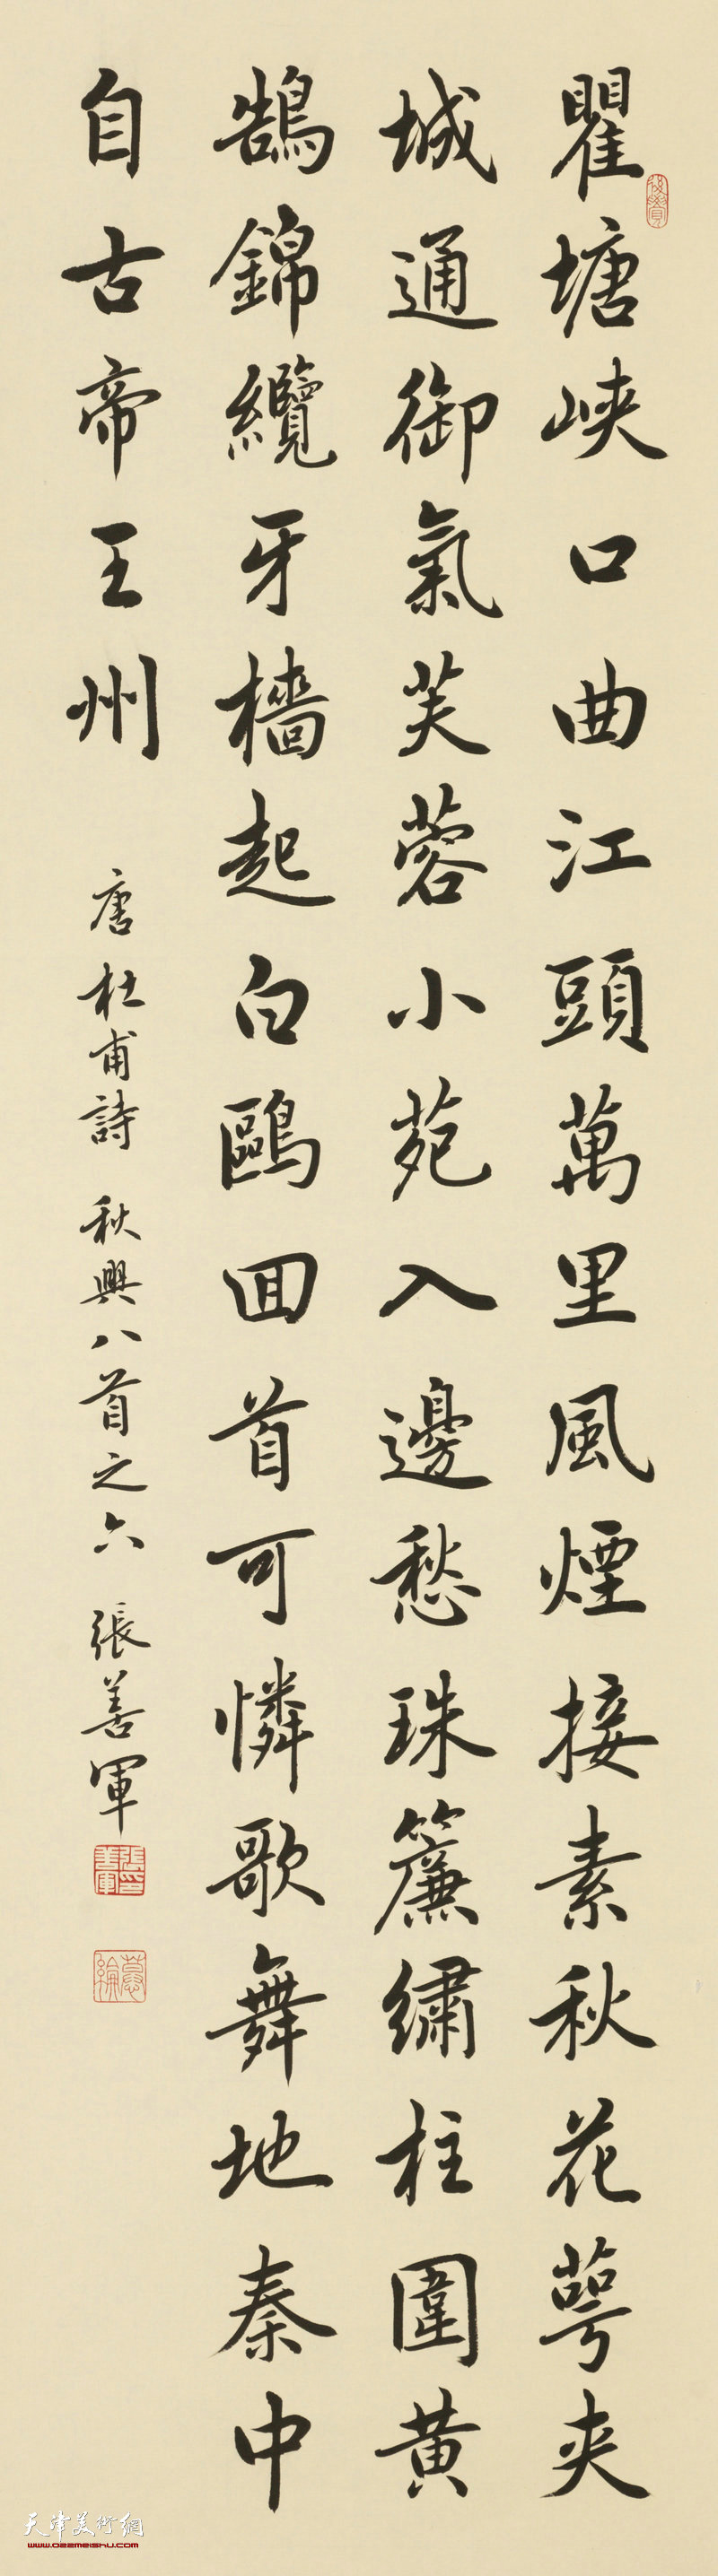 瞿塘峽口曲江頭萬里風煙接素秋花萼夾
城通御氣芙蓉小苑入邊愁珠簾繡柱圍黃
鵠錦纜牙檣起白鷗回首可憐歌舞地秦中
自古帝王州
唐杜甫詩 秋興八首之六 張善軍
張善軍印
天津美術網
www.022meishu.com